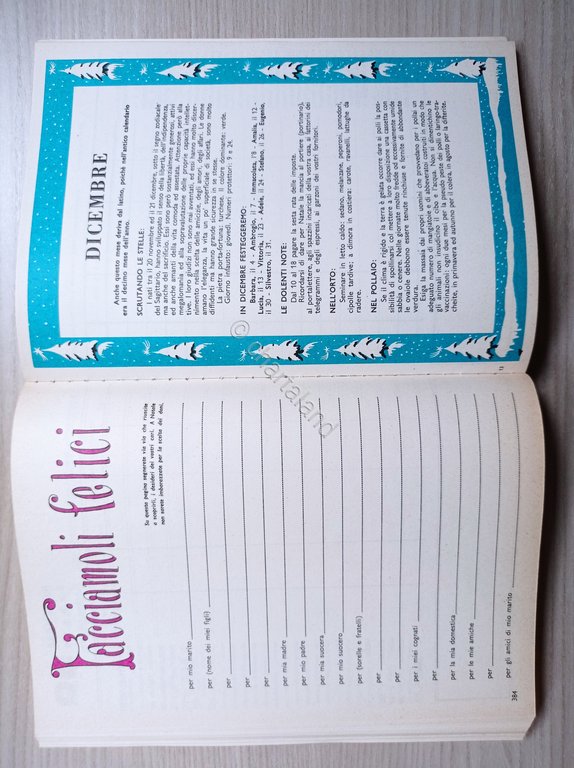 Facciamoli felici
Su questa pagina segnerete via via che riuscite
a scoprirli, i desideri dei vostri cari. A Natale
non sarete imbarazzate per la scelta dei doni.
per mio marito
per (nome dei miei figli)
per
per
per mia madre
per mio padre
per mia suocera
per mio suocero
per (sorelle e fratelli)
per
per
per i miei cognati
per
per la mia domestica
per le mie amiche
per
per gli amici di mio marito
384
DICEMBRE
Anche questo mese deriva dal latino, poiché nell'antico calendario
era il decimo mese dell'anno.
SCRUTANDO LE STELLE:
I nati tra il 20 novembre ed il 21 dicembre, sotto il segno zodiacale
del Sagittario, hanno sviluppato il senso della libertà, dell'indipendenza,
ma anche del sacrificio. Essi sono sostanzialmente generosi, attivi
ed anche amanti della vita comoda ed assestata. Attenzione però alla
megalomania ed alla sopravalutazione delle proprie capacità intellet-
tive. I loro giudizi non sono mai avventati, ed essi hanno molto discer-
nimento nella scelta della professione, degli amori, degli affari. Le donne
amano l'eleganza, la vita un po' superficiale di società, sono molto
diffidenti ma hanno grande sicurezza in se stesse.
La pietra porta-fortuna: turchese. Il colore dominante: verde.
Giorno infausto: giovedì. Numeri protettori: 9 e 24.
IN DICEMBRE FESTEGGEREMO:
Barbara, il 4 - Ambrogio, il 7 - Immacolata, l'8 - Amalia, il 12 -
Lucia, il 13 - Vittoria, il 23 - Adele, il 24 - Stefano, il 26 - Eugenio,
il 30 - Silvestro, il 31.
LE DOLENTI NOTE:
Dal 10 al 18 pagare la sesta rata delle imposte.
Ricordarsi di dare per Natale la mancia al portiere (portinaio),
al portalettere, agli spazzini incaricati della vostra casa, ai fattorini dei
telegrammi e degli espressi, ai garzoni dei vostri fornitori.
NELL'ORTO:
Seminare in letto caldo: sedano, melanzane, peperoni, pomodori,
cipolle tardive; a dimora in cassiera: carote, ravanelli, lattughe da
radere.
NEL POLLAIO:
Se il clima è rigido e la terra è gelata occorre dare ai polli la pos-
sibilità di spollinarsi col mettere a loro disposizione una cassetta con
sabbia o cenere. Nelle giornate molto fredde od eccessivamente umide
le ovaiole debbono essere tenute rinchiuse e fornite di abbondante
verdura.
Esiga la massaia dai propri uomini che provvedano per i pollai un
adeguato numero di mangiatoie e di abbeveratoi costruiti in modo che
gli animali non insudicino il cibo e l'acqua. Non si dimentichino le
vaccinazioni: ogni due mesi per la pseudo peste dei polli o laringo-tra-
cheite, in primavera ed autunno per il colera, in agosto per la difterite.
13
© chartaland